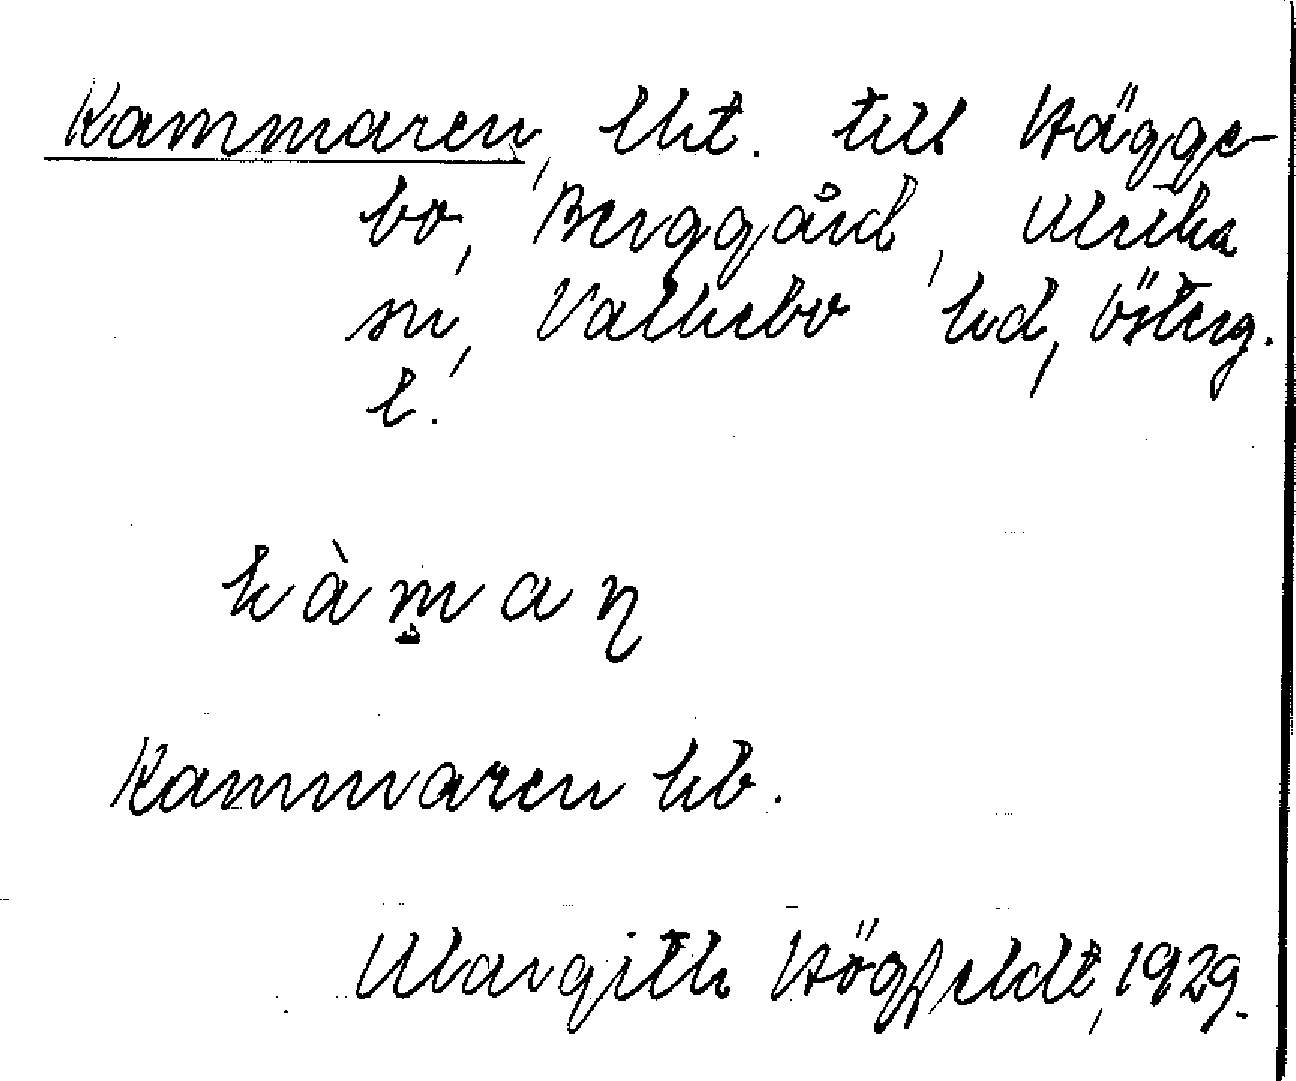 Kammaren, lht. till Hägge-
bo, Berggård, Ulrika
sn, Valkebo hd, Österg.
l.
kàman̥
Kammaren kb.
Margith Högfeldt, 1929.